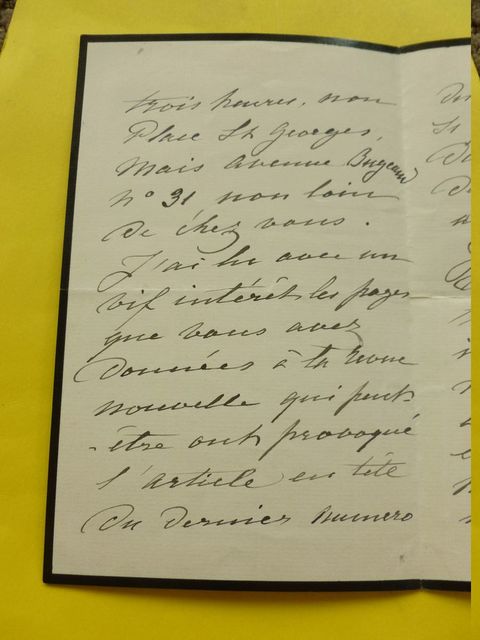 trois heures, non
Place St Georges,
mais avenue Bugeaud
n° 31 non loin
de chez vous.
J'ai lu avec un
vif intérêt les pages
que vous avez
données à la revue
nouvelle qui peut-
-être ont provoqué
l'article en tête
du dernier numero